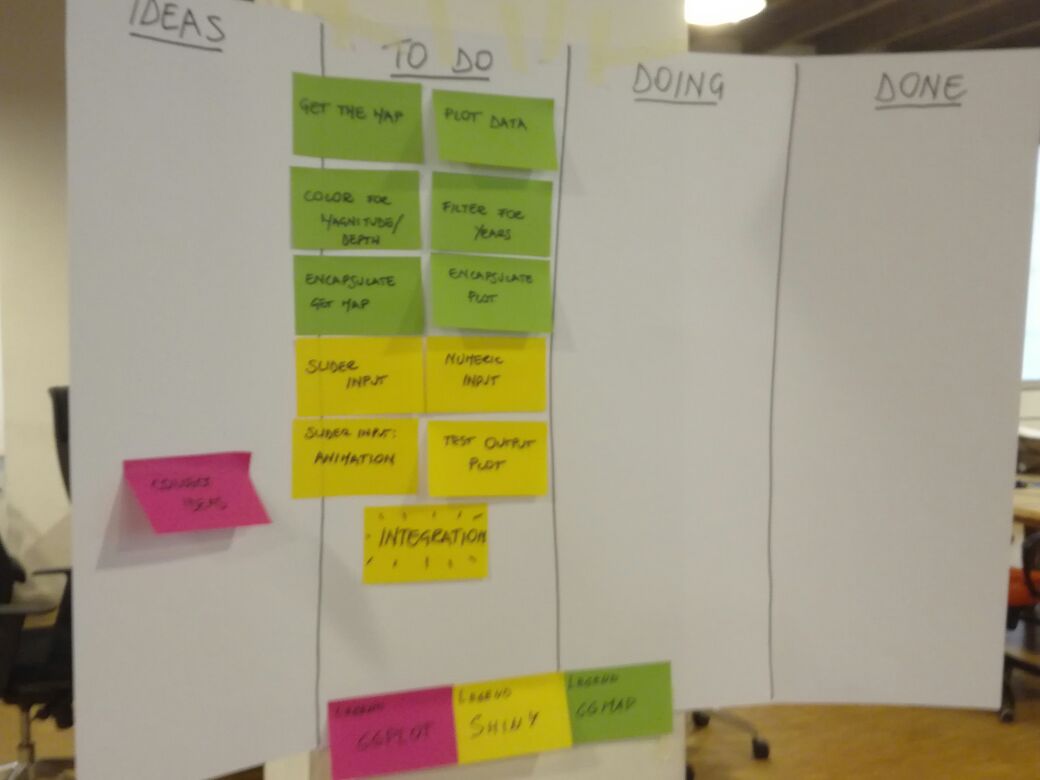 IDEAS
TO DO
DOING
DONE
GET THE MAP
PLOT DATA
COLOR FOR
MAGNITUDE/
DEPTH
FILTER FOR
YEARS
ENCAPSULATE
GET MAP
ENCAPSULATE
PLOT
SLIDER
INPUT
NUMERIC
INPUT
SLIDER INPUT:
ANIMATION
TEST OUTPUT
PLOT
IDEAS
INTEGRATION
LEGEND
GGPLOT
LEGEND
SHINY
LEGEND
GGMAP